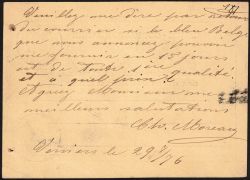 Veuillez me dire par retour
du courrier si le bleu Belge
que vous annoncez pouvoir
me fournir en 15 jours
est de toute 1re qualité
et à quel prix ?
Agréez Monsieur mes
meilleurs salutations
Ch. Moreau
Verviers le 29 /96